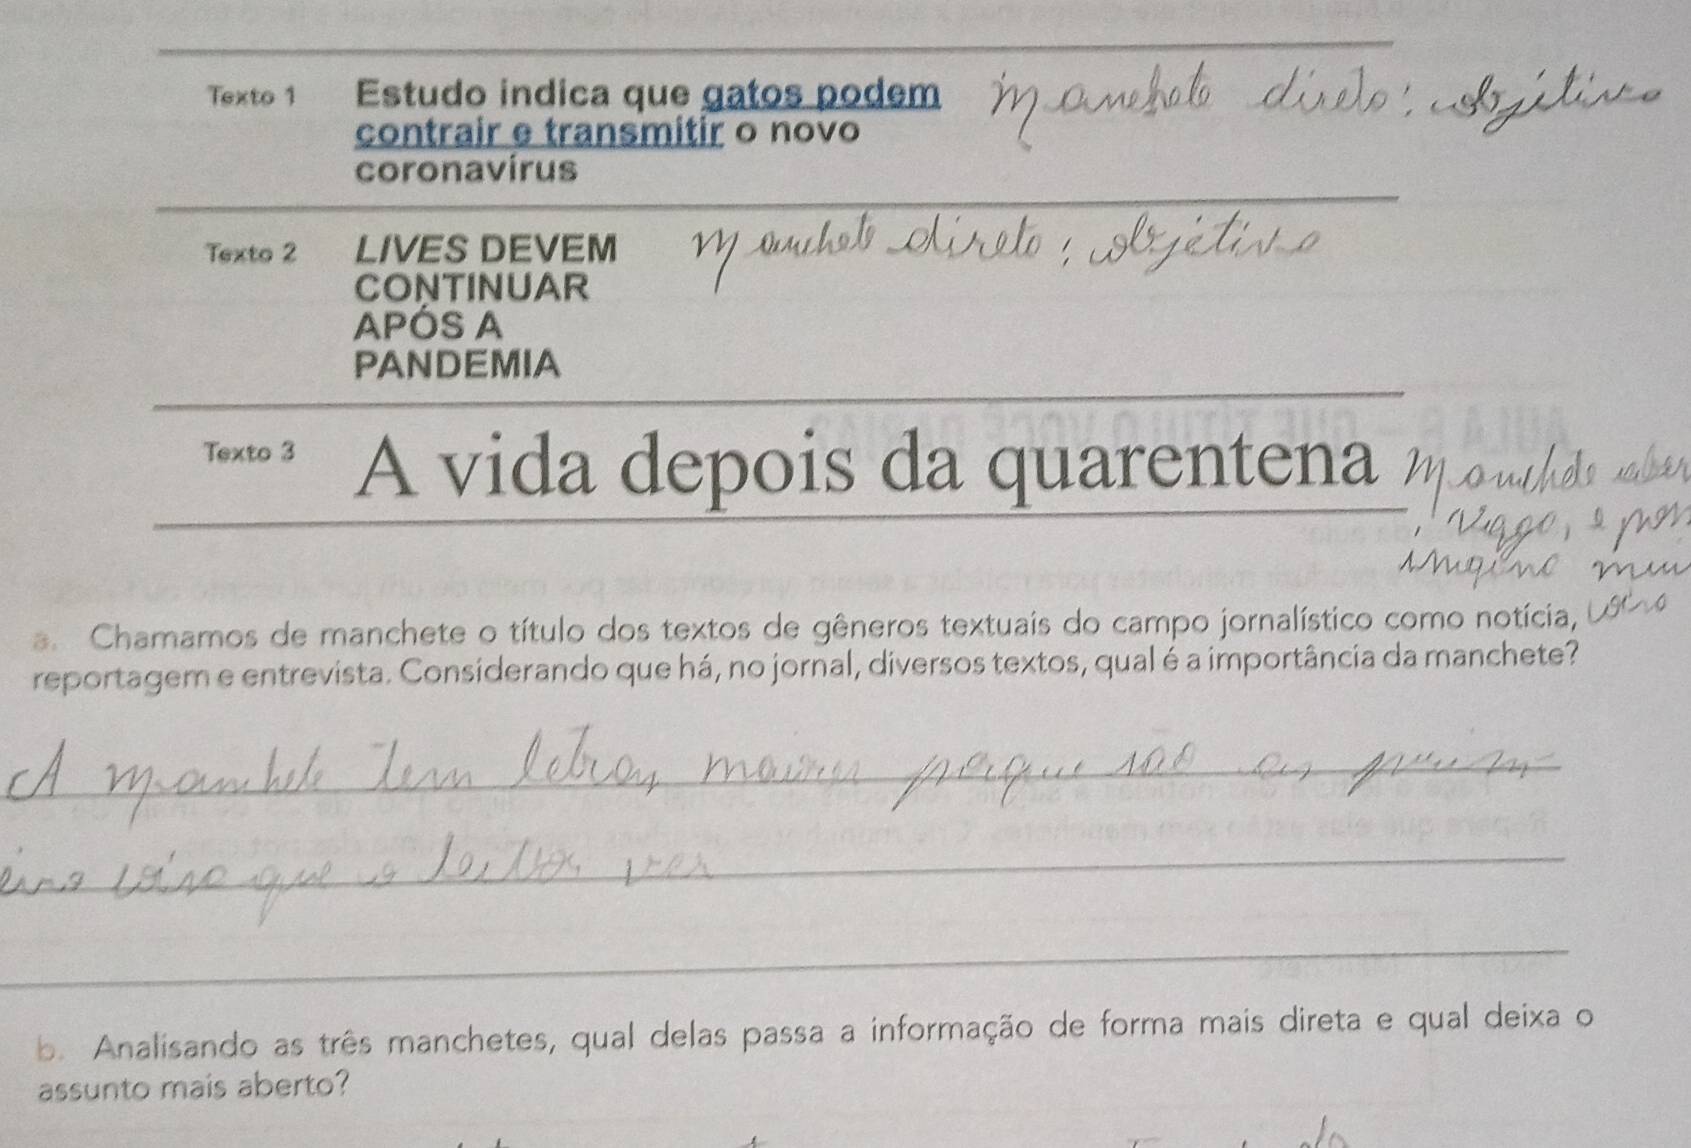 Texto 1 Estudo indica que gatos podem manchete direto: objetivo
contrair e transmitir o novo
coronavírus
Texto 2 LIVES DEVEM manchete direto: objetivo
CONTINUAR
APÓS A
PANDEMIA
Texto 3 A vida depois da quarentena
vago, e
imagino
coiso
a. Chamamos de manchete o título dos textos de gêneros textuais do campo jornalístico como notícia,
reportagem e entrevista. Considerando que há, no jornal, diversos textos, qual é a importância da manchete?
A manchete tem letras maiores porque são as prim
eira coisa que o leitor ver
b. Analisando as três manchetes, qual delas passa a informação de forma mais direta e qual deixa o
assunto mais aberto?